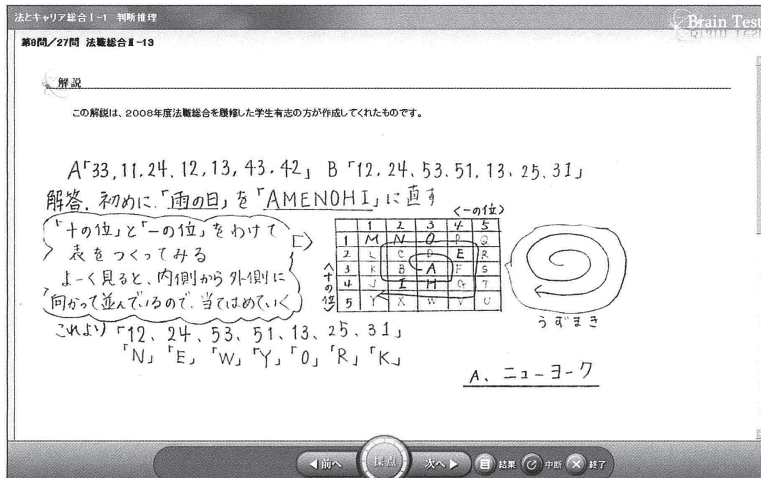 法とキャリア総合Ⅰ-1 判断推理
Brain Test
第9問/27問 法職総合Ⅱ-13
解説
この解説は、2008年度法職総合を履修した学生有志の方が作成してくれたものです。
A「33,11,24,12,13,43,42」 B「12,24,53,51,13,25,31」
解答. 初めに、「雨の日」を「AMENOHI」に直す
「十の位」と「一の位」をわけて
表をつくってみる
よーく見ると、内側から外側に
向かって並んでいるので、当てはめていく
<一の位>
<十の位>
1 2 3 4 5
1 M N O P Q
2 L C D E R
3 K B A F S
4 J I H G T
5 Y X W V U
うずまき
これより「12、24、53、51、13、25、31」
「N」「E」「W」「Y」「O」「R」「K」
A、ニューヨーク
前へ
採点
次へ
結果
中断
終了